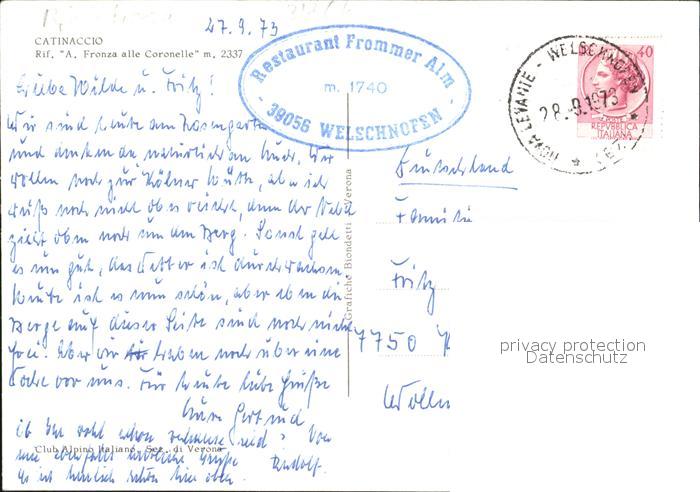 27.9.73
CATINACCIO
Rif. "A. Fronza alle Coronelle" m. 2337
Restaurant Frommer Alm
m. 1740
39056 WELSCHNOFEN
NOVA LEVANTE - WELSCHNOFEN
28.9.1973
40
REPVBBLICA
ITALIANA
Liebe Wilde u. Fritz!
Wir sind heute am Rosengarten
und denken da natürlich an Euch. Wir
wollen noch zur Kölner Hütte, aber ich
weiß noch nicht ob es reicht, denn der Nebel
zieht oben noch um den Berg. Sonst geht
es uns gut, das Wetter ist durchwachsen
heute ist es nun schön, aber eben die
Berge auf dieser Seite sind noch nicht
frei. Aber wir haben noch über eine
Woche vor uns. Für heute liebe Grüße
Eure Gertrud
Ob Ihr wohl schon zuhause seid? Von
mir ebenfalls herzliche Grüße Rudolf.
Es ist herrlich schön hier oben.
Club Alpino Italiano - Sez. di Verona
Grafiche Biondetti - Verona
Deutschland
Familie
Fritz
7750 K
Wollm
privacy protection
Datenschutz